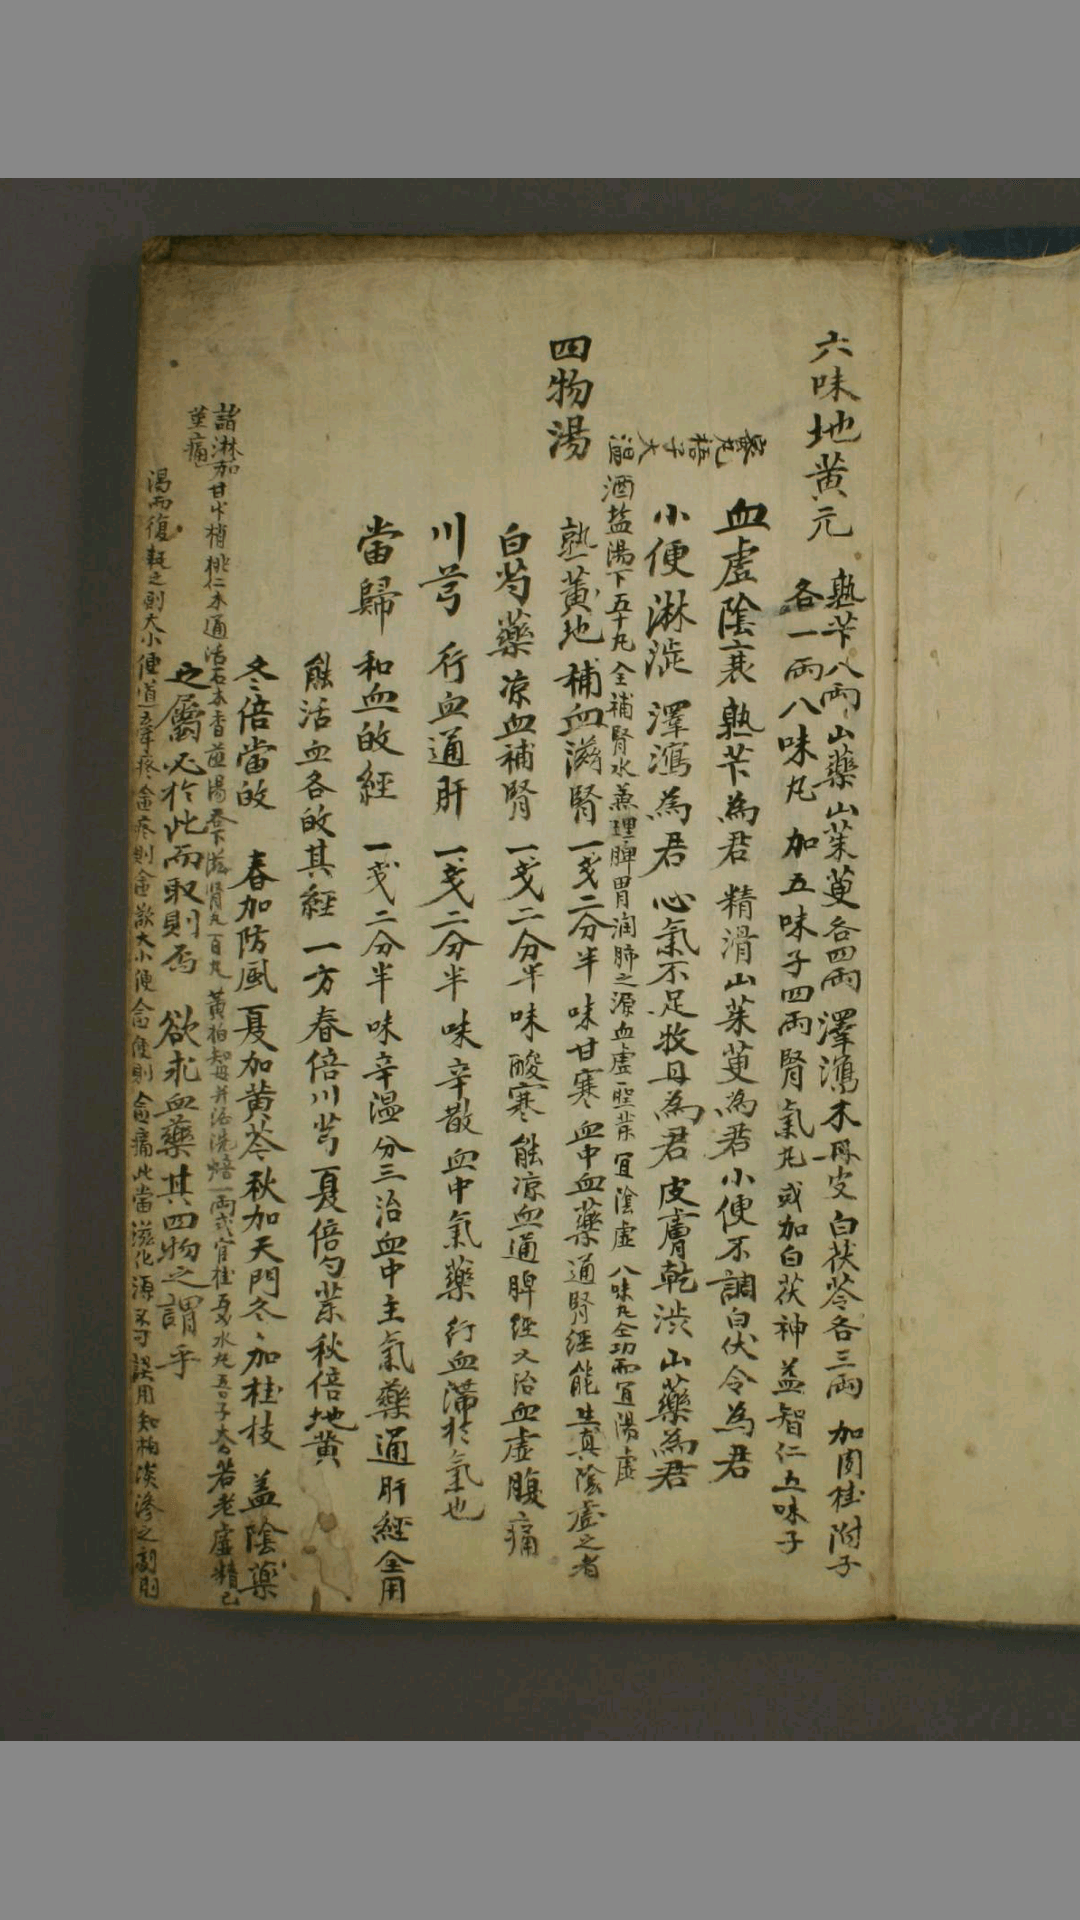 六味地黄元
熟芐八兩 山藥山茱萸各四兩 澤瀉木丹皮白茯苓各三兩 加肉桂附子
各一兩八味丸 加五味子四兩腎氣丸 或加白茯神益智仁五味子
血虛陰衰熟芐為君 精滑山茱萸為君 小便不調白伏令為君
小便淋澁澤瀉為君 心氣不足牧丹為君 皮膚乾澁山藥為君
蜜丸梧子大
酒塩湯下五十丸 全補腎水兼理脾胃润肺之源血虛 宜陰虛 八味丸仝功而宜陽虛
四物湯
熟黄地 補血滋腎 一戔二分半 味甘寒 血中血藥 通腎經能生真陰虛之者
白芍藥 凉血補腎 一戔二分半 味酸寒 能凉血通脾經又治血虛腹痛
川芎 行血通肝 一戔二分半 味辛散 血中氣藥 行血滯於氣也
當歸 和血的經 一戔二分半 味辛溫分三治血中主氣藥通肝經全用
能活血各的其經 一方春倍川芎 夏倍勺藥秋倍地黄
冬倍當的 春加防風夏加黄芩秋加天門冬冬加桂枝 盖陰藥
之屬必於此而取則焉 欲求血藥其四物之謂乎
諸淋加甘艹梢桃仁木通活石木香 湯呑下滋腎丸百丸 黄柏知母并酒洗焙一兩式官桂五分水丸吾子大 若老虛精已
莖痛
渴而復耗之則大小便道牽疼愈疼則愈欲大小便愈便則愈痛此當滋化源不可誤用知柏淡滲之剤